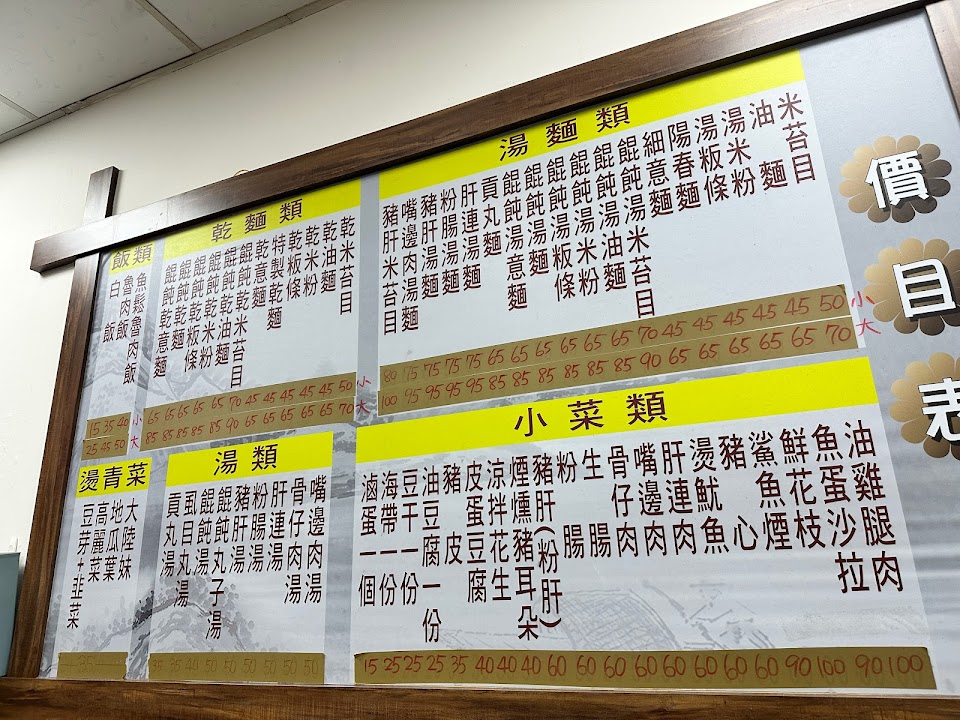 價目表
湯麵類
米苔目
油麵
湯米粉
湯粄條
陽春麵
細意麵
餛飩湯米苔目
餛飩湯油麵
餛飩湯米粉
餛飩湯粄條
餛飩麵
餛飩湯意麵
貢丸麵
肝連湯麵
粉腸湯麵
豬肝湯麵
嘴邊肉湯麵
豬肝米苔目
80 75 75 75 75 65 65 65 65 65 65 70 45 45 45 45 45 50 小
100 95 95 95 95 85 85 85 85 85 85 90 65 65 65 65 65 70 大
乾麵類
乾米苔目
乾油麵
乾米粉
乾粄條
特製乾麵
乾意麵
餛飩乾米苔目
餛飩乾油麵
餛飩乾米粉
餛飩乾粄條
餛飩乾麵
餛飩乾意麵
65 65 65 65 65 70 45 45 45 45 45 50 小
85 85 85 85 85 90 65 65 65 65 65 70 大
飯類
魚鬆魯肉飯
魯肉飯
白飯
15 35 40 小
25 45 50 大
小菜類
油雞腿肉
魚蛋沙拉
鮮花枝
鯊魚煙
豬心
燙魷魚
肝連肉
嘴邊肉
骨仔肉
生腸
粉腸
豬肝(粉肝)
煙燻豬耳朵
涼拌花生
皮蛋豆腐
豬皮
油豆腐一份
豆干一份
海帶一份
滷蛋一個
15 25 25 25 35 40 40 40 60 60 60 60 60 60 60 60 90 100 90 100
湯類
嘴邊肉湯
骨仔肉湯
肝連湯
粉腸湯
豬肝湯
餛飩丸子湯
餛飩湯
虱目丸湯
貢丸湯
35 35 40 50 50 50 50 50 50
燙青菜
大陸妹
地瓜葉
高麗菜
豆芽+韭菜
35